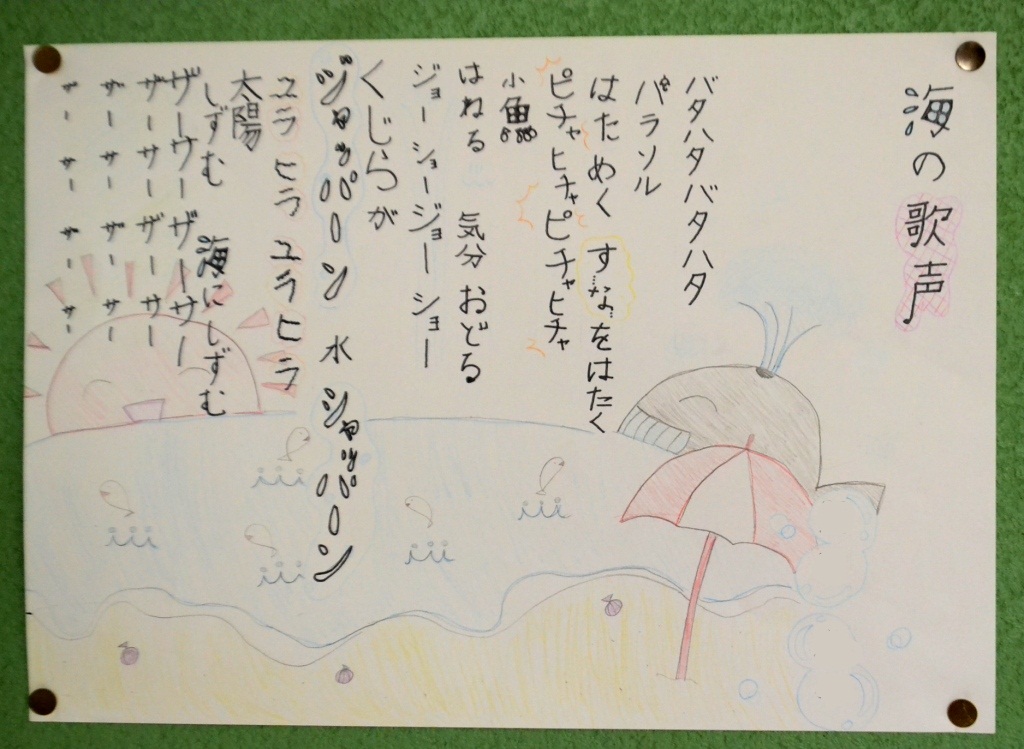 海の歌声
バタハタバタハタ
パラソル
はためく すなをはたく
ピチャヒチャピチャヒチャ
小魚
はねる 気分おどる
ジョーショージョーショー
くじらが
ジャッパーン 水 シャッパーン
ユラヒラユラヒラ
太陽
しずむ 海にしずむ
ザーサーザーサー
ザーサーザーサー
ザーサーザーサー
ザーサーザーサー